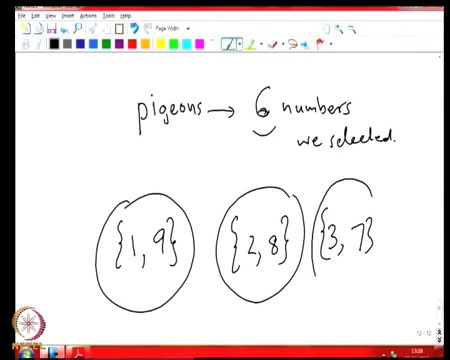 File Edit View Insert Actions Tools Help
Page Width
pigeons → 6 numbers
we selected.
{1, 9} {2, 8} {3, 7}
12 / 12
NPTEL
13:18